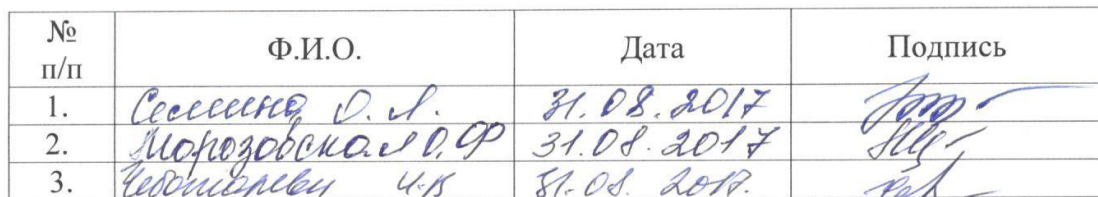 № п/п Ф.И.О. Дата Подпись
1. Семина О. А. 31.08.2017
2. Морозовская О.Ф 31.08.2017
3. 31.08.2017.